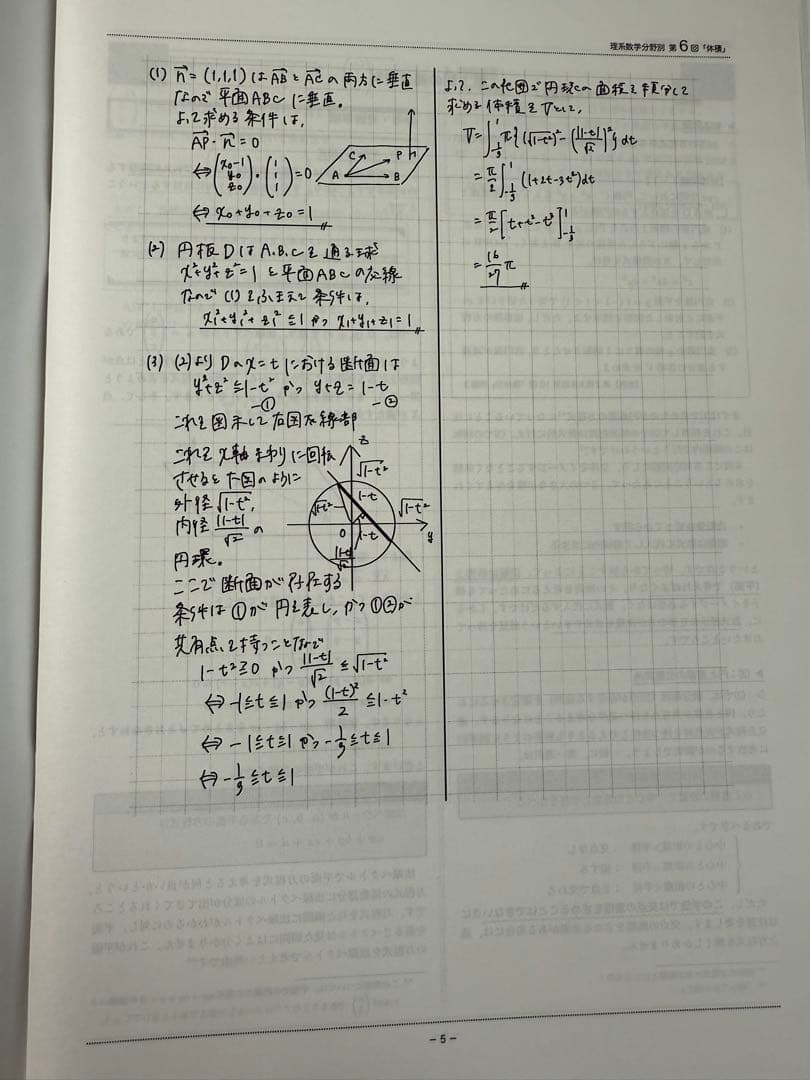 理系数学分野別 第6回「体積」
(1) n⃗=(1,1,1)はAB⃗とAC⃗の両方に垂直
なので平面ABCに垂直。
よって求める条件は、
AP⃗・n⃗=0
⇔(x₀-1 y₀ z₀)・(1 1 1)=0
C P n⃗ A B
⇔ x₀+y₀+z₀=1
(2) 円板DはA.B.Cを通る球
x²+y²+z²=1と平面ABCの交線
なので(1)をふまえて条件は、
x₁²+y₁²+z₁²≦1かつx₁+y₁+z₁=1
(3) (2)よりDのx=tにおける断面は
y²+z²≦1-t² かつ y+z=1-t
-① -②
これを図示して右図太線部
これをx軸まわりに回転
させると下図のように
外径√1-t²,
内径|1-t|/√2 の
円環。
z √1-t² 1-t √1-t² √1-t² O 1-t y |1-t|/√2
ここで断面が存在する
条件は①が円を表し、かつ①②が
共有点を持つことなので
1-t²≧0 かつ |1-t|/√2≦√1-t²
⇔ -1≦t≦1かつ (1-t)²/2≦1-t²
⇔ -1≦t≦1かつ -1/3≦t≦1
⇔ -1/3≦t≦1
よって、この範囲で円環の面積を積分して
求める体積をVとして、
V=∫_{-1/3}^{1} π{(√1-t²)²-(|1-t|/√2)²}dt
=π/2∫_{-1/3}^{1}(1+2t-3t²)dt
=π/2[t+t²-t³]_{-1/3}^{1}
=16/27π
- 5 -